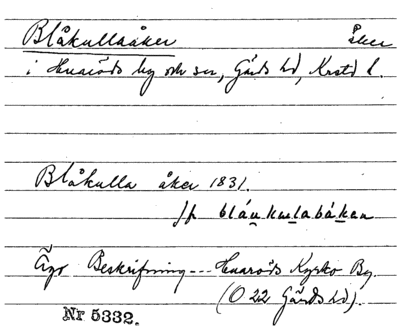 Blåkullaåker åker
i Huaröds by och sn, Gärds hd, Krstd l.
Blåkulla åker 1831.
jfr bláu̲kuu̲labák̲an
Ägo Beskrifning --- Huaröds Kyrko By.
(O 22 Gärds hd).
Nr 5332.